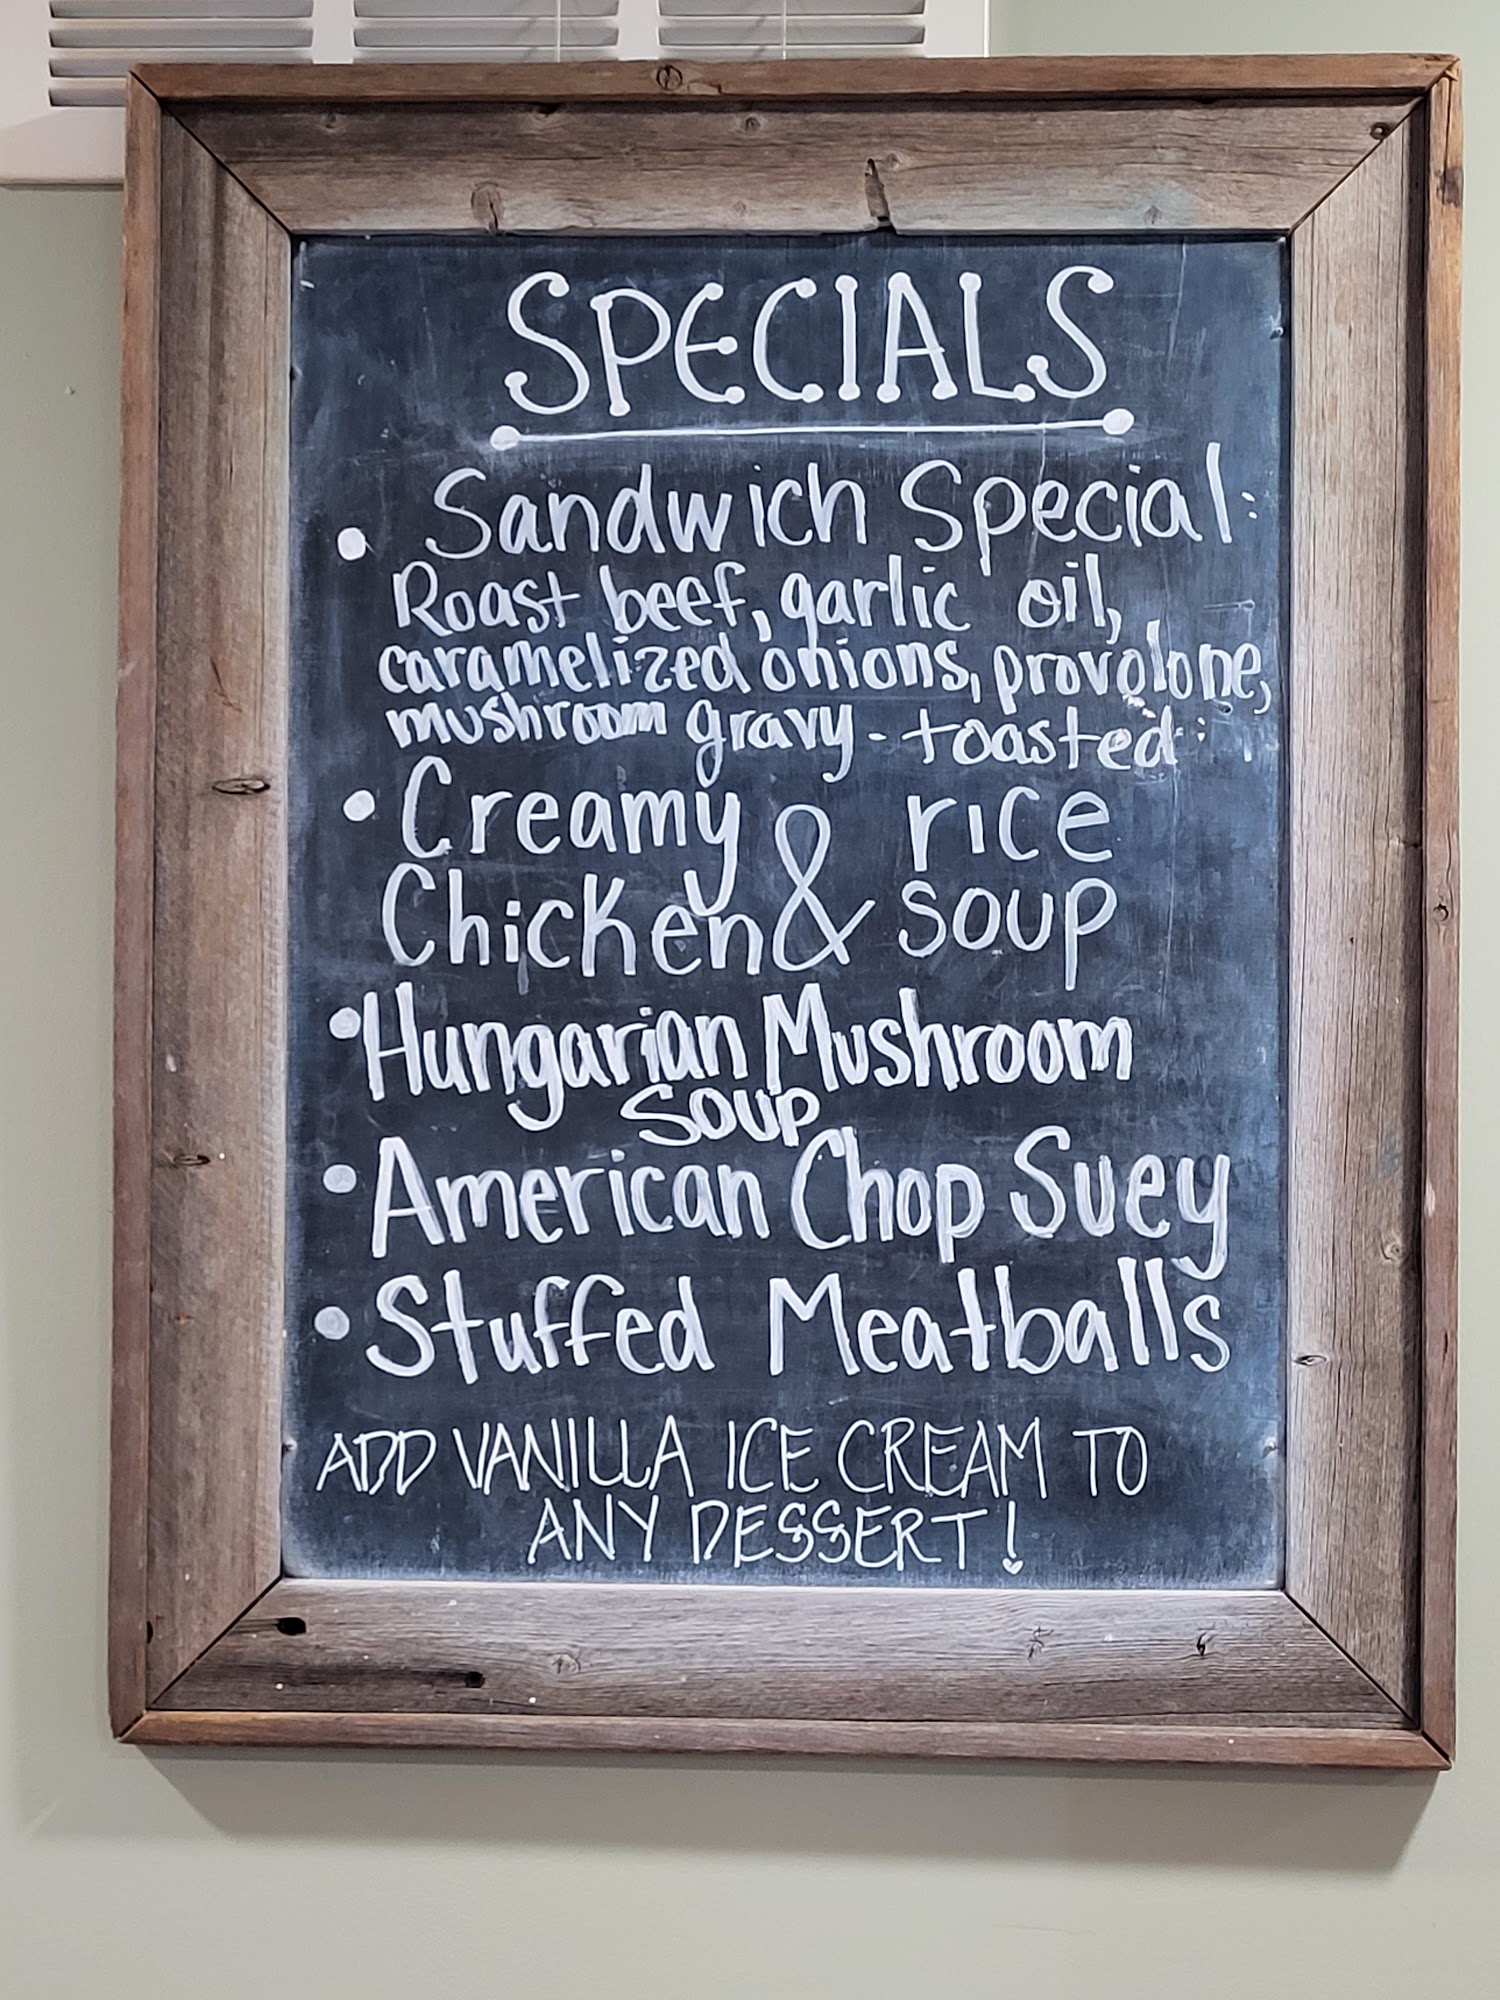 SPECIALS
• Sandwich Special:
Roast beef, garlic oil,
caramelized onions, provolone,
mushroom gravy - toasted:
• Creamy & rice
Chicken soup
• Hungarian Mushroom
soup
• American Chop Suey
• Stuffed Meatballs
ADD VANILLA ICE CREAM TO
ANY DESSERT!